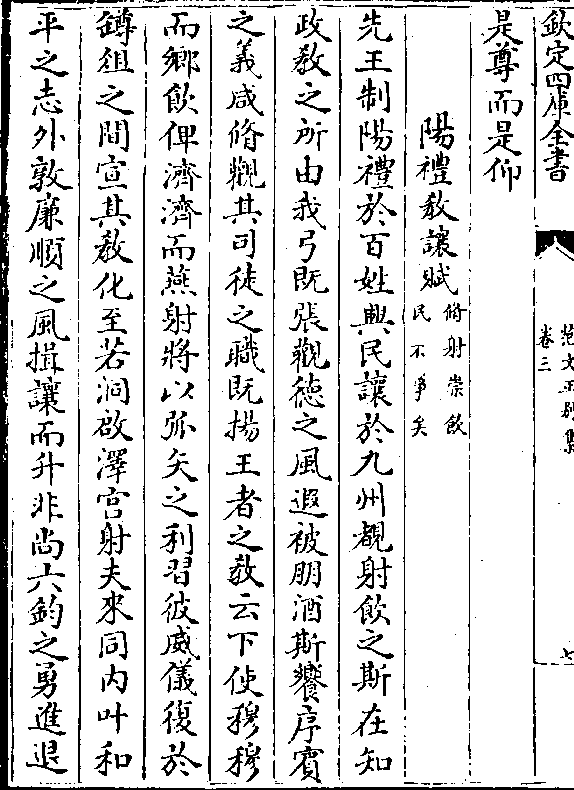 欽定四庫全書
范文正別集
卷三
七
是尊而是仰
陽禮教讓賦
脩射崇飲
民不爭矣
先王制陽禮於百姓興民讓於九州覩射飲之斯在知
政教之所由我弓既張觀德之風遐被朋酒斯饗序賓
之義咸脩觀其司徒之職既揚王者之教云下使穆穆
而鄉飲俾濟濟而燕射將以弧矢之利習彼威儀復於
鐏俎之間宣其教化至若洞啟澤宮射夫來同内叶和
平之志外敦廉順之風揖讓而升非尚六鈞之勇進退